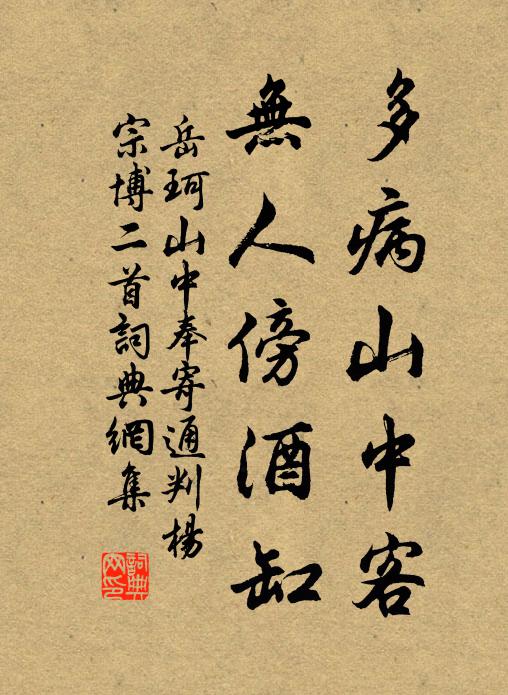 多病山中客
無人傍酒缸
岳珂山中奉寄通判楊
宗博二首詞典網集
詞典网印